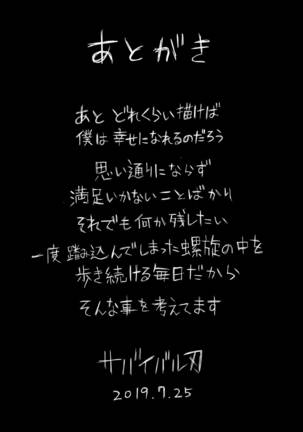 あとがき
あと どれくらい描けば
僕は幸せになれるのだろう
思い通りにならず
満足いかないことばかり
それでも何か残したい
一度踏み込んでしまった螺旋の中を
歩き続ける毎日だから
そんな事を考えてます
サバイバル刃
2019.7.25